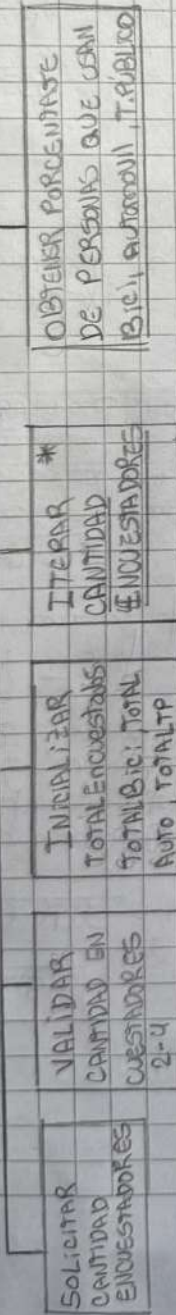 SOLICITAR
CANTIDAD
ENCUESTADORES
VALIDAR
CANTIDAD EN
CUESTADORES
2-4
INICIALIZAR
TOTAL Encuestados
TOTAL Bici; TOTAL
AUTO, TOTALTP
ITERAR *
CANTIDAD
ENCUESTADORES
OBTENER PORCENTAJE
DE PERSONAS QUE USAN
Bici, AUTOMOVIL, T.PÚBLICO